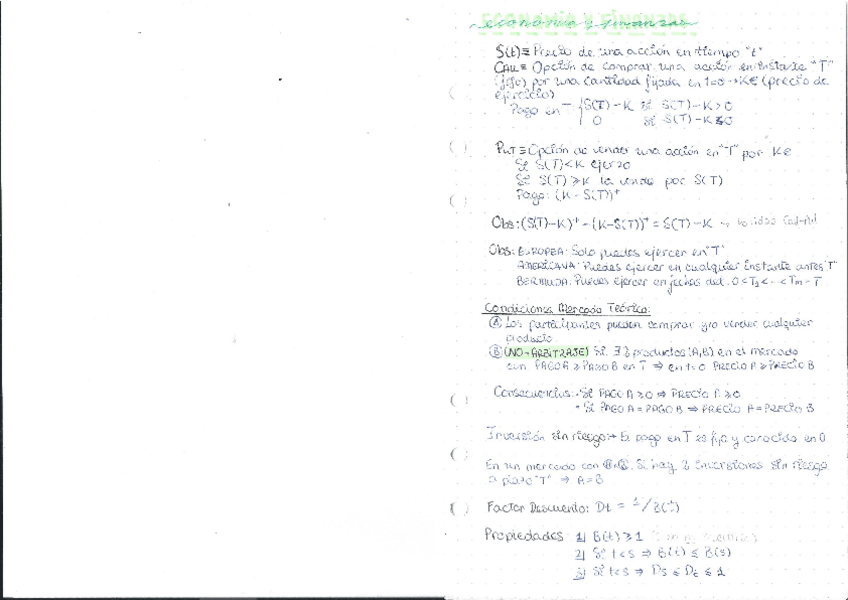 economía y finanzas
S(t) ≡ Precio de una acción en tiempo "t"
CALL ≡ Opción de comprar una acción en instante "T"
(fijo) por una cantidad fijada en t=0 → K€ (precio de
ejercicio)
Pago en T { S(T) - K si S(T) - K > 0
0 si S(T) - K ≤ 0
PUT ≡ Opción de vender una acción en "T" por K€
Si S(T) < K ejerzo
Si S(T) ≥ K la vendo por S(T)
Pago: (K - S(T))⁺
Obs: (S(T)-K)⁺ - (K-S(T))⁺ = S(T) - K →
Obs: EUROPEA: Solo puedes ejercer en "T"
AMERICANA: Puedes ejercer en cualquier instante antes "T"
BERMUDA: Puedes ejercer en fechas det. 0 < T₁ < - < Tm = T
Condiciones Mercado Teórico:
Ⓐ Los participantes pueden comprar y/o vender cualquier
producto
Ⓑ (NO-ARBITRAJE) Si ∃ 2 productos (A,B) en el mercado
con PAGO A ≥ PAGO B en T ⇒ en t=0 PRECIO A ≥ PRECIO B
Consecuencias: · Si PAGO A ≥ 0 ⇒ PRECIO A ≥ 0
· Si PAGO A = PAGO B ⇒ PRECIO A = PRECIO B
Inversión sin riesgo → El pago en T es fijo y conocido en 0
En un mercado con Ⓐ-Ⓑ. Si hay 2 inversiones sin riesgo
a plazo "T" ⇒ A = B
Factor Descuento: Dt = 1/B(t)
Propiedades 1) B(t) ≥ 1
2) Si t < s ⇒ B(t) ≤ B(s)
3) Si t < s ⇒ Ds ≤ Dt ≤ 1